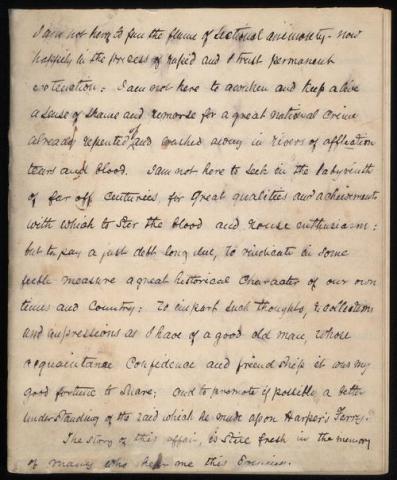 I am not here to fan the flame of sectional animosity - now
happily in the process of rapid and I trust permanent
extination: I am not here to awaken and keep alive
a sense of shame and remorse for a great national crime
already repented of and washed away in rivers of affliction
tears and blood. I am not here to seek in the labyrinth
of far off centuries, for great qualities and achievements
with which to stir the blood and rouse enthusiasm:
but to pay a just debt long due, to vindicate in some
feeble measure a great historical Character of our own
times and Country: to impart such thoughts, recollections
and impressions as I have of a good old man, whose
acquaintance Confidence and friendship it was my
good fortune to share; and to promote if possible a better
understanding of the raid which he made upon Harper's Ferry.
The story of this affair, is still fresh in the memory
of many who hear me this Evening.